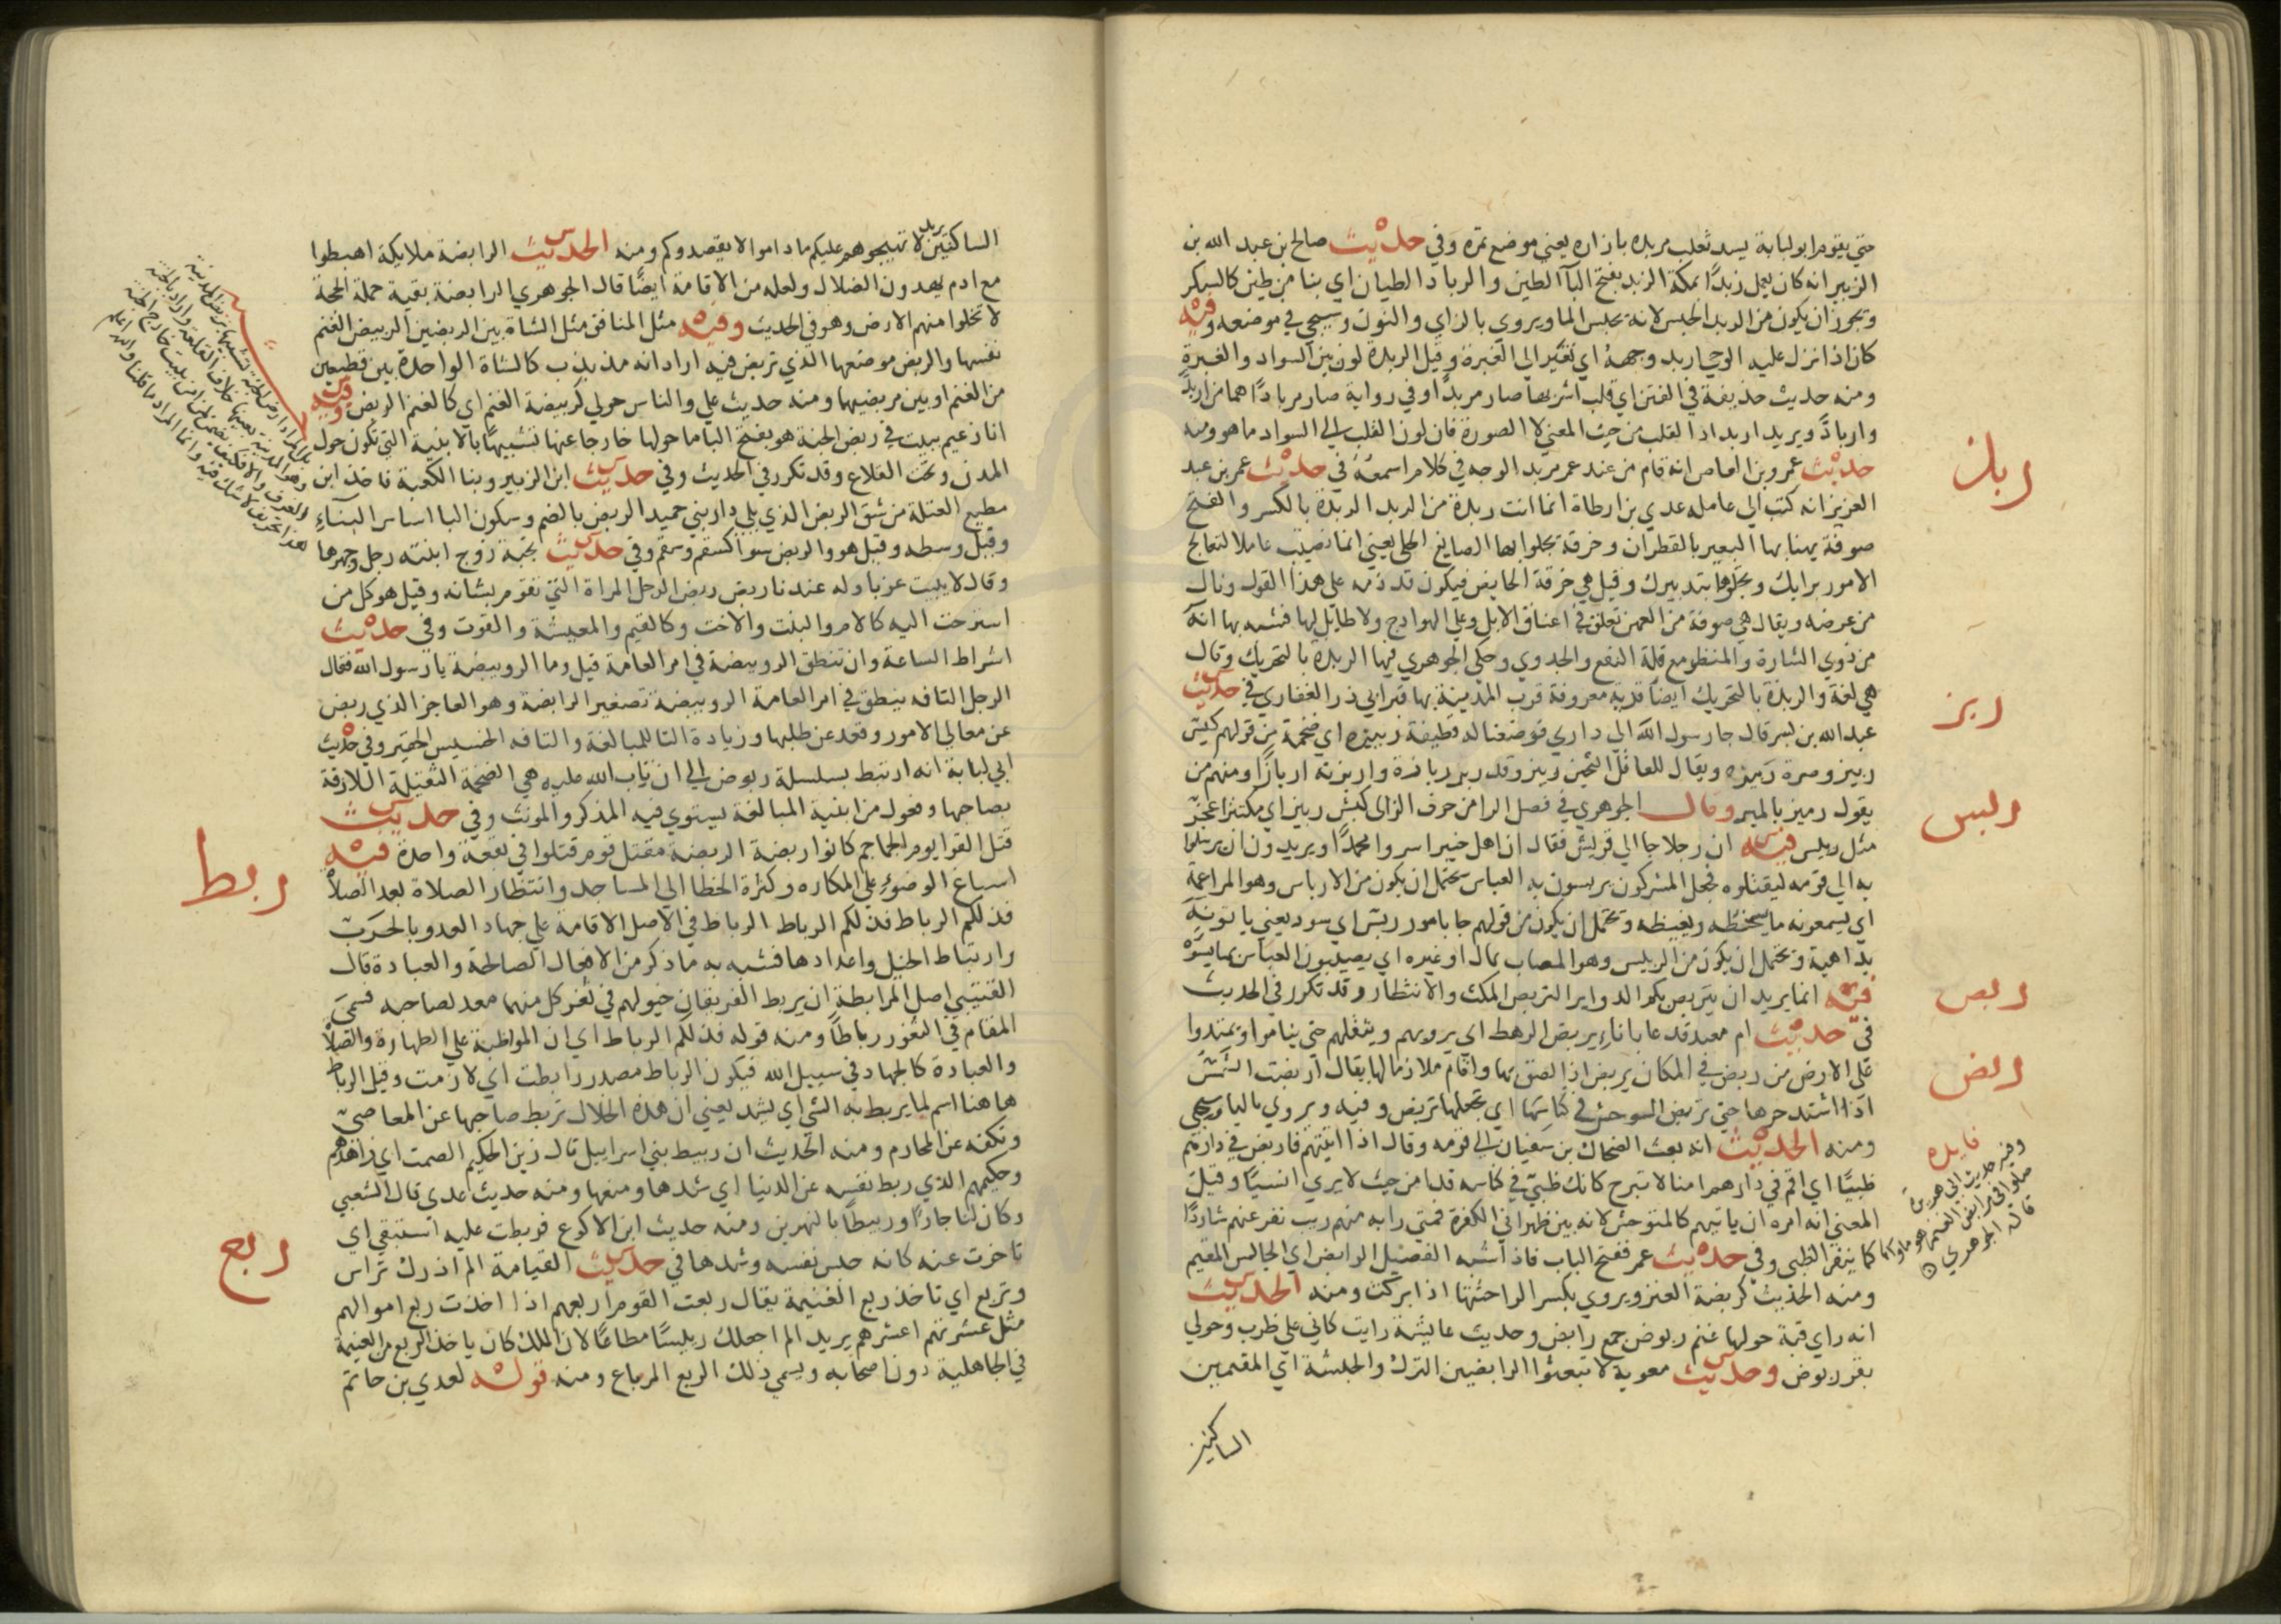 حتي يقوم ابو لبابة يسد ثعلب مربده بازاره يعني موضع تمره وفي حديث صالح بن عبد الله بن
الزبير انه كان يعمل ربدًا بمكة الربد بفتح البآ الطين والرباد الطيان اي بنا من طين كالسكر
ويجوز ان يكون من الربد الحبس لانه يحبس الما ويروي بالزاي والنون وسيجي في موضعه وفيه
كان اذا نزل عليه الوحي اربد وجهه اي تغير الي الغبرة وقيل الربدة لون بين السواد والغبرة
ومنه حديث حذيفة في الفتن اي قلب اشربها صار مربدًا وفي رواية صار مربادًا هما من اربدّ
واربادّ ويريد اربداد القلب من حيث المعني لا الصورة فان لون القلب الي السواد ما هو ومنه
حديث عمرو بن العاص انه قام من عند عمر مربد الوجه في كلام اسمعه في حديث عمر بن عبد
العزيز انه كتب الي عامله عدي بن ارطاة انما انت ربذة من الربذ الربذة بالكسر والفتح
صوفة يهنا بها البعير بالقطران وخرقة يجلوا بها الصايغ الحلي يعني انما نصبت عاملا لتعالج
الامور برايك وتجلوها بتدبيرك وقيل هي خرقة الحايض فيكون قد ذمه علي هذا القول ونال
من عرضه ويقال هي صوفة من العهن تعلق في اعناق الابل وعلي الهوادج ولا طايل لها فشبه بها انه
من ذوي الشارة والمنظر مع قلة النفع والجدوي وحكي الجوهري فيها الربذة بالتحريك وقال
هي لغة والربذة بالتحريك ايضا قرية معروفة قرب المدينة بها قبر ابي ذر الغفاري في حديث
عبد الله بن بسر قال جا رسول الله الي داري فوضعنا له قطيفة ربيزه اي ضخمة من قولهم كيس
ربيز وصرة ربيزه ويقال للعاقل الثخين ربيز وقد ربز ربازة واربزته اربازًا ومنهم من
يقول رميز بالميم وقال الجوهري في فصل الرا من حرف الزاي كبش ربيز اي مكتنز اعجز
مثل ربيس فيه ان رجلا جا الي قريش فقال ان اهل خيبر اسروا محمدًا ويريدون ان يرسلوا
به الي قومه ليقتلوه فجعل المشركون يربسون به العباس يحتمل ان يكون من الارباس وهو المراغمة
اي يسمعونه ما يسخطه ويغيظه ويحتمل ان يكون من قولهم جا بامور ربس اي سود يعني ياتونه
بداهية ويحتمل ان يكون من الربيس وهو المصاب بمال او غيره اي يصيبون العباس بما يسوه
فيه انما يريد ان يتربص بكم الدواير التربص المكث والانتظار وقد تكرر في الحديث
في حديث ام معبد فدعا باناء يربض الرهط اي يرويهم ويثقلهم حتي يناموا ويمتدوا
علي الارض من ربض في المكان يربض اذا لصق بها واقام ملازما لها يقال اربضت الشمس
اذا اشتد حرها حتي تربض الوحش في كناسها اي تجعلها تربض وفيه ويروي باليا وسيجي
ومنه الحديث انه بعث الضحاك بن سفيان الي قومه وقال اذا اتيتهم فاربض في دارهم
ظبيًا اي اقم في دارهم امنا لا تبرح كانك ظبي في كناسه قد امن حيث لا يري انسيًا وقيل
المعني انه امره ان ياتيهم كالمتوحش لانه بين ظهراني الكفرة فمتي رابه منهم ريب نفر عنهم شاردًا
كما ينفر الظبي وفي حديث عمر ففتح الباب فاذا شبه الفصيل الرابض اي الجالس المقيم
ومنه الحديث كربضة العنز ويروي بكسر الرا جثتها اذا بركت ومنه الحديث
انه راي قبة حولها غنم ربوض جمع رابض وحديث عايشة رايت كاني علي ظرب وحولي
بقر ربوض وحديث معوية لا تبعثوا الرابضين الترك والحبشة اي المقيمين
الساكنين
ربذ
ربز
ربس
ربص
ربض
فايده
وفيه حديث ابي هريرة
صلوا في مرابض الغنم هو ماواها
قاله الجوهري
الساكنين يريد لا تهيجوهم عليكم ما داموا لا يقصدوكم ومنه الحديث الرابضة ملايكة اهبطوا
مع ادم يهدون الضلال ولعله من الاقامة ايضًا قال الجوهري الرابضة بقية حملة الحجة
لا تخلوا منهم الارض وهو في الحديث وفيه مثل المنافق مثل الشاة بين الربضين الربيض الغنم
نفسها والربض موضعها الذي تربض فيه اراد انه مذبذب كالشاة الواحدة بين قطيعين
من الغنم او بين مربضيهما ومنه حديث علي والناس حولي كربيضة الغنم اي كالغنم الربض وفيه
انا زعيم ببيت في ربض الجنة هو بفتح البا ما حولها خارجا عنها تشبيهًا بالابنية التي تكون حول
المدن وتحت القلاع وقد تكرر في الحديث وفي حديث ابن الزبير وبنا الكعبة فاخذ ابن
مطيع العتلة من شق الربض الذي يلي دار بني حميد الربض بالضم وسكون البا اساس البناء
وقيل وسطه وقيل هو والربض سوا كسقم وسقم وفي حديث نجبة زوج ابنته رجل وجهزها
وقال لا يبيت عزبا وله عندنا ربض ربض الرجل المراة التي تقوم بشانه وقيل هو كل من
استرحت اليه كالام والبنت والاخت وكالقيم والمعيشة والقوت وفي حديث
اشراط الساعة وان تنطق الرويبضة في امر العامة قيل وما الرويبضة يا رسول الله فقال
الرجل التافه ينطق في امر العامة الرويبضة تصغير الرابضة وهو العاجز الذي ربض
عن معالي الامور وقعد عن طلبها وزيادة التا للمبالغة والتافه الخسيس الحقير وفي حديث
ابي لبابة انه ارتبط بسلسلة ربوض الي ان تاب الله عليه هي الضخمة الثقيلة اللازقة
بصاحبها وفعول من ابنية المبالغة يستوي فيه المذكر والمونث وفي حديث
قتل القرا يوم الجماجم كانوا ربضة الربضة مقتل قوم قتلوا في بقعة واحدة فيه
اسباغ الوضوء علي المكاره وكثرة الخطا الي المساجد وانتظار الصلاة بعد الصلاة
فذلكم الرباط فذلكم الرباط الرباط في الاصل الاقامة علي جهاد العدو بالحرب
وارتباط الخيل واعدادها فشبه به ما ذكر من الافعال الصالحة والعبادة قال
القتيبي اصل المرابطة ان يربط الفريقان خيولهم في ثغر كل منهما معد لصاحبه فسمي
المقام في الثغور رباطًا ومنه قوله فذلكم الرباط اي ان المواظبة علي الطهارة والصلاة
والعبادة كالجهاد في سبيل الله فيكون الرباط مصدر رابطت اي لازمت وقيل الرباط
هاهنا اسم لما يربط به الشي اي يشد يعني ان هذه الخلال تربط صاحبها عن المعاصي
وتكفه عن المحارم ومنه الحديث ان ربيط بني اسراييل قال زين الحكيم الصمت اي زاهدهم
وحكيمهم الذي ربط نفسه عن الدنيا اي شدها ومنعها ومنه حديث عدي قال الشعبي
وكان لنا جارًا وربيطًا بالنهرين ومنه حديث ابن الاكوع فربطت عليه استبقي اي
تاخرت عنه كانه حبس نفسه وشدها في حديث القيامة الم اذرك تراس
وتربع اي تاخذ ربع الغنيمة يقال ربعت القوم اربعهم اذا اخذت ربع اموالهم
مثل عشرتهم اعشرهم يريد الم اجعلك رييسًا مطاعًا لان الملك كان ياخذ الربع من الغنيمة
في الجاهلية دون اصحابه ويسمي ذلك الربع المرباع ومنه قوله لعدي بن حاتم
ربط
ربع